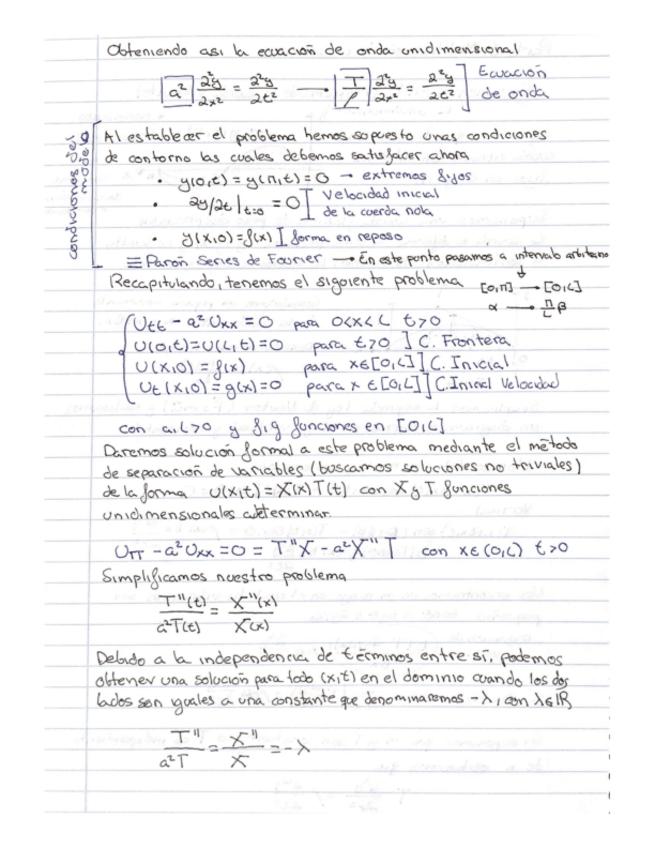 Obteniendo asi la ecuación de onda unidimensional
a² ∂²y/∂x² = ∂²y/∂t² → T/ρ ∂²y/∂x² = ∂²y/∂t² ] Ecuación de onda
condiciones del modelo
Al establecer el problema hemos supuesto unas condiciones
de contorno las cuales debemos satisfacer ahora
• y(0,t) = y(π,t) = 0 → extremos fijos
• ∂y/∂t |t=0 = 0 ] Velocidad inicial de la cuerda nola
• y(x,0) = f(x) ] forma en reposo
≡ Parón Series de Fourier → En este punto pasamos a intervalo arbitrario
Recapitulando, tenemos el siguiente problema [0,π] → [0,L]
α → π/L β
Utt - a² Uxx = 0 para 0<x<L t>0
U(0,t) = U(L,t) = 0 para t>0 ] C. Frontera
U(x,0) = f(x) para x∈[0,L] ] C. Inicial
Ut(x,0) = g(x) = 0 para x∈[0,L] ] C. Inicial Velocidad
con a,L>0 y f,g funciones en [0,L]
Daremos solución formal a este problema mediante el método
de separación de variables (buscamos soluciones no triviales)
de la forma U(x,t) = X(x)T(t) con X y T funciones
unidimensionales a determinar.
UTT - a² Uxx = 0 = T''X - a²X''T con x∈(0,L) t>0
Simplificamos nuestro problema
T''(t)/a²T(t) = X''(x)/X(x)
Debido a la independencia de términos entre sí, podemos
obtener una solución para todo (x,t) en el dominio cuando los dos
lados son iguales a una constante que denominaremos -λ, con λ∈ℝ
T''/a²T = X''/X = -λ